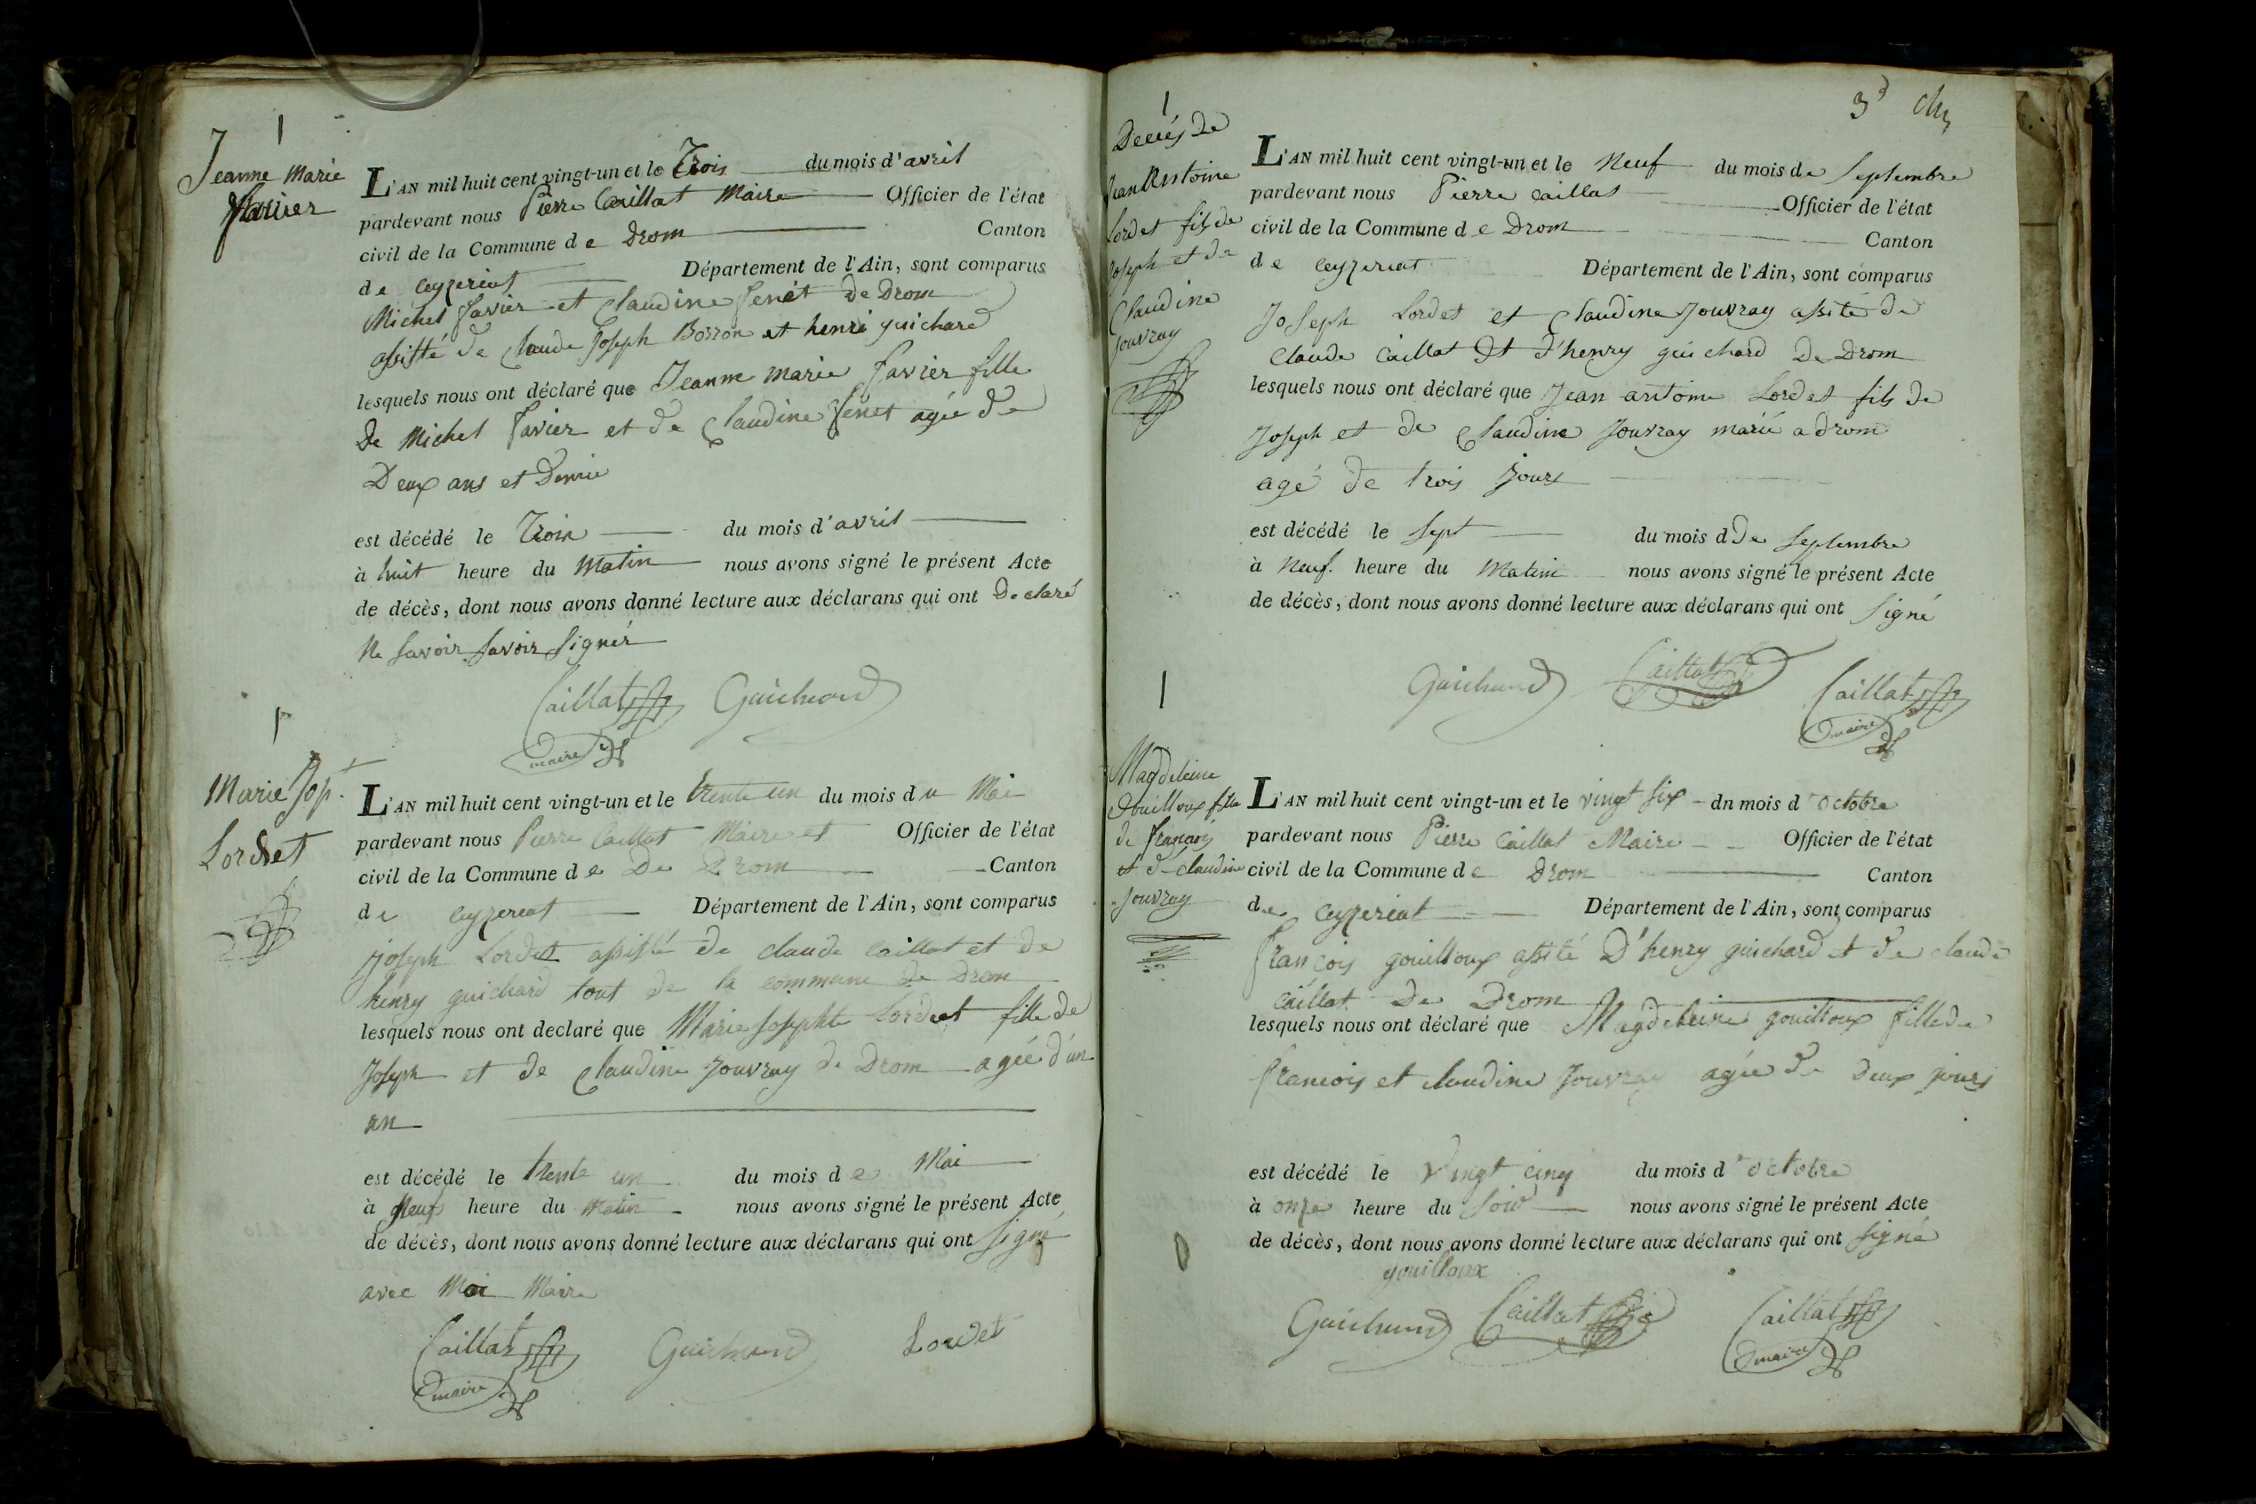 Jeanne Marie
favier
L'AN mil huit cent vingt-un et le Trois du mois d'avril
pardevant nous Pierre Caillat Maire Officier de l'état
civil de la Commune de Drom Canton
de Ceyzeriat Département de l'Ain, sont comparus
Michel favier et Claudine fenet de Drom
assisté de Claude Joseph Borron et henri guichard
lesquels nous ont déclaré que Jeanne Marie favier fille
De Michel favier et de Claudine fenet agée de
Deux ans et Demie
est décédé le Trois du mois d'avril
à huit heure du Matin nous avons signé le présent Acte
de décès, dont nous avons donné lecture aux déclarans qui ont Declaré
Ne Savoir Savoir Signér
Caillat Guichard
maire
Marie Jop.t
Lordet
L'AN mil huit cent vingt-un et le trente un du mois du Mai
pardevant nous Pierre Caillat Maire et Officier de l'état
civil de la Commune de De Drom Canton
de Ceyzereat Département de l'Ain, sont comparus
joseph Lordet assisté de claude caillat et de
henry guichard tout de la commune de Drom
lesquels nous ont declaré que Marie Josephte Lordet fille de
Joseph et de Claudine Jouvray de Drom agée d'un
an
est décédé le trente un du mois de Mai
à Neuf heure du Matin nous avons signé le présent Acte
de décès, dont nous avons donné lecture aux déclarans qui ont Signé
avec Moi Maire
Caillat Guichard Lordet
maire
3
Decés de
Jean Antoine
Lordet fils de
Joseph et de
Claudine
Jouvray
L'AN mil huit cent vingt-un et le Neuf du mois de Septembre
pardevant nous Pierre caillat Officier de l'état
civil de la Commune de Drom Canton
de Ceyzereat Département de l'Ain, sont comparus
Joseph Lordet et Claudine Jouvray assité de
Claude Caillat et d'henry guichard De Drom
lesquels nous ont déclaré que Jean antoine Lordet fils de
Joseph et de Claudine Jouvray marié a drom
agé de trois Jours
est décédé le Sept du mois d de Septembre
à Neuf. heure du Matin nous avons signé le présent Acte
de décès, dont nous avons donné lecture aux déclarans qui ont Signé
Guichard Caillat Caillat
maire
Magdeleine
Gouilloux fille
de françois
et de claudine
Jouvray
L'AN mil huit cent vingt-un et le vingt Six dn mois d'octobre
pardevant nous Pierre Caillat Maire Officier de l'état
civil de la Commune de Drom Canton
de Ceyzeriat Département de l'Ain, sont comparus
françois gouilloux assité D'henry guichard et de claude
caillat De Drom
lesquels nous ont déclaré que Magdeleine gouilloux fille de
francois et claudine Jouvray agée de deux jours
est décédé le Vingt cinq du mois d'octobre
à onze heure du Soir nous avons signé le présent Acte
de décès, dont nous avons donné lecture aux déclarans qui ont Signé
gouilloux
Guichard Caillat Caillat
maire